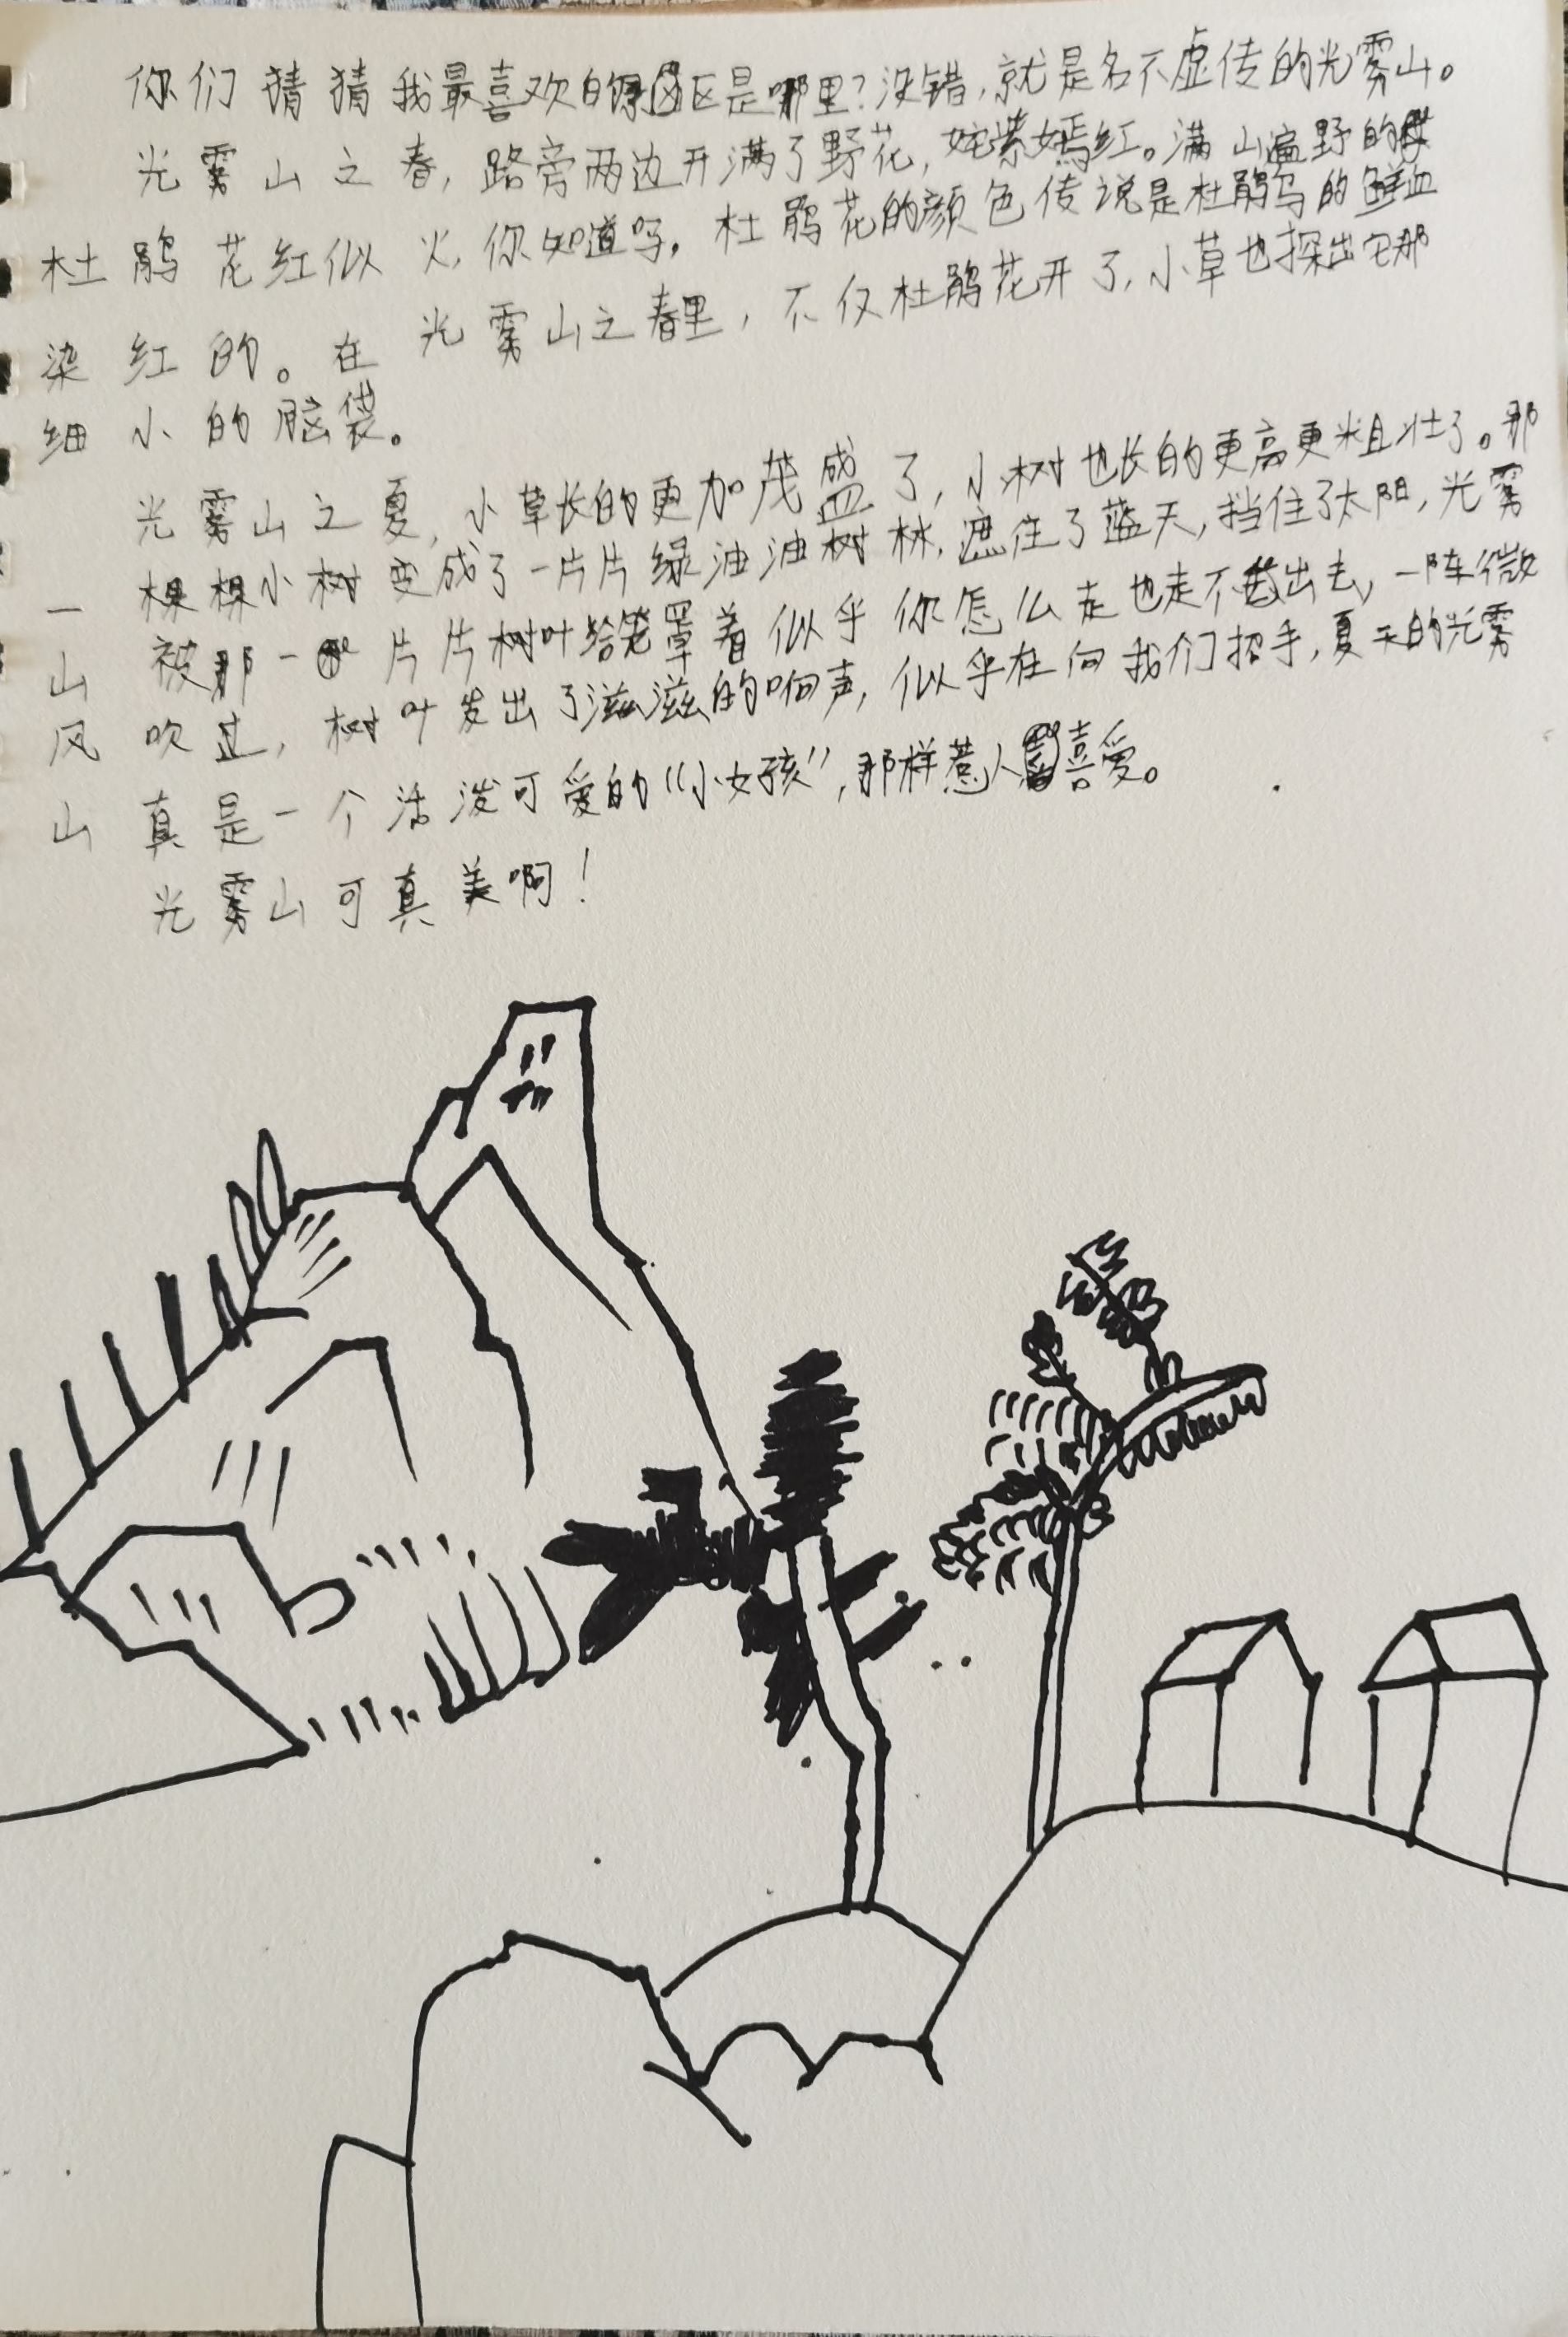 你们猜猜我最喜欢的区是哪里?没错,就是名不虚传的光雾山。
光雾山之春,路旁两边开满了野花,姹紫嫣红。满山遍野的
杜鹃花红似火,你知道吗,杜鹃花的颜色传说是杜鹃鸟的鲜血
染红的。在光雾山之春里,不仅杜鹃花开了,小草也探出它那
细小的脑袋。
光雾山之夏,小草长的更加茂盛了,小树也长的更高更粗壮了。那
一棵棵小树变成了一片片绿油油树林,遮住了蓝天,挡住了太阳,光雾
山被那一片片树叶给笼罩着似乎你怎么走也走不出去,一阵微
风吹过,树叶发出了滋滋的响声,似乎在向我们招手,夏天的光雾
山真是一个活泼可爱的“小女孩”,那样惹人喜爱。
光雾山可真美啊!